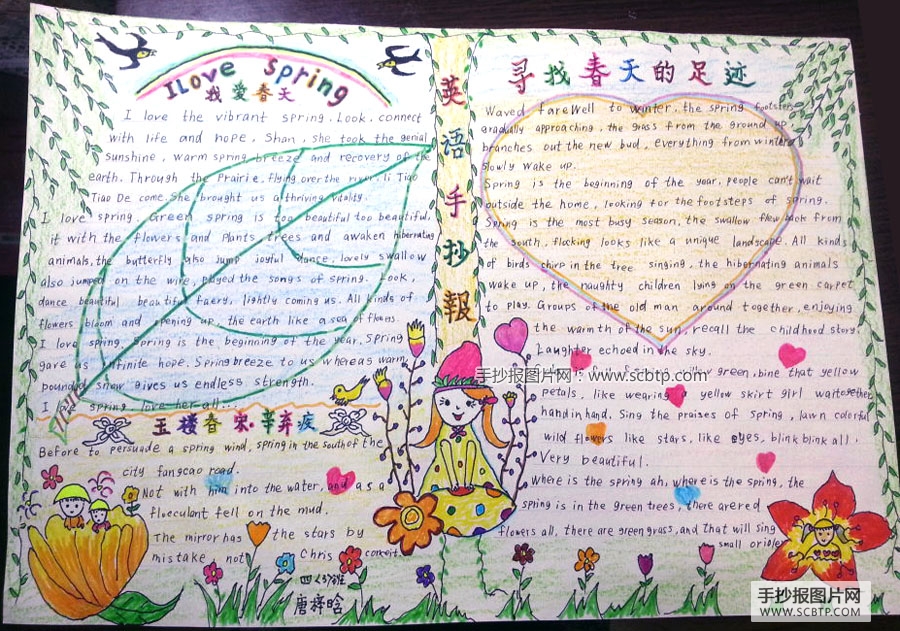 I Love Spring
我爱春天
I love the vibrant spring. Look, connect
with life and hope, Shan, she took the genial
sunshine, warm spring breeze and recovery of the
earth. Through the Prairie, flying over the river, li Tiao
Tiao De come. She brought us a thriving vitality.
I love spring. Green spring is too beautiful too beautiful,
it with the flowers and plants, trees and awaken hibernating
animals, the butterfly also jump joyful dance, lovely swallow
also jumped on the wire, played the songs of spring. Look,
dance beautiful beautiful faery, lightly coming us. All kinds of
flowers bloom and opening up, the earth like a sea of flowers.
I love spring. Spring is the beginning of the year. Spring
gave us infinite hope. Spring breeze to us whereas warm,
pounded snow gives us endless strength.
I love spring love her all...
玉楼春 宋·辛弃疾
Before to persuade a spring wind, spring in the south of the
city fangcao road.
Not with him into the water, and as a
flocculant fell on the mud.
The mirror has the stars by
mistake, not Chris conceit.
唐梓晗
英语手抄報
寻找春天的足迹
Waved farewell to winter, the spring footsteps
gradually approaching, the grass from the ground up,
branches out the new bud, everything from winter
slowly wake up.
Spring is the beginning of the year, people can't wait
outside the home, looking for the footsteps of spring.
Spring is the most busy season, the swallow flew back from
the south, flocking looks like a unique landscape. All kinds
of birds chirp in the tree singing, the hibernating animals
wake up, the naughty children lying on the green carpet
to play. Groups of the old man around together, enjoying
the warmth of the sun, recall the childhood story.
Laughter echoed in the sky.
手抄报图片网：www.scbtp.com
green, bine that yellow
petals, like wearing a yellow skirt girl waitogether
hand in hand. Sing the praises of spring, lawn colorful
wild flowers like stars, like eyes, blink blink all.
Very beautiful.
Where is the spring ah, where is the spring, the
spring is in the green trees, there are red
flowers all, there are green grass, and that will sing
small orioles
手抄报图片网
WWW.SCBTP.COM